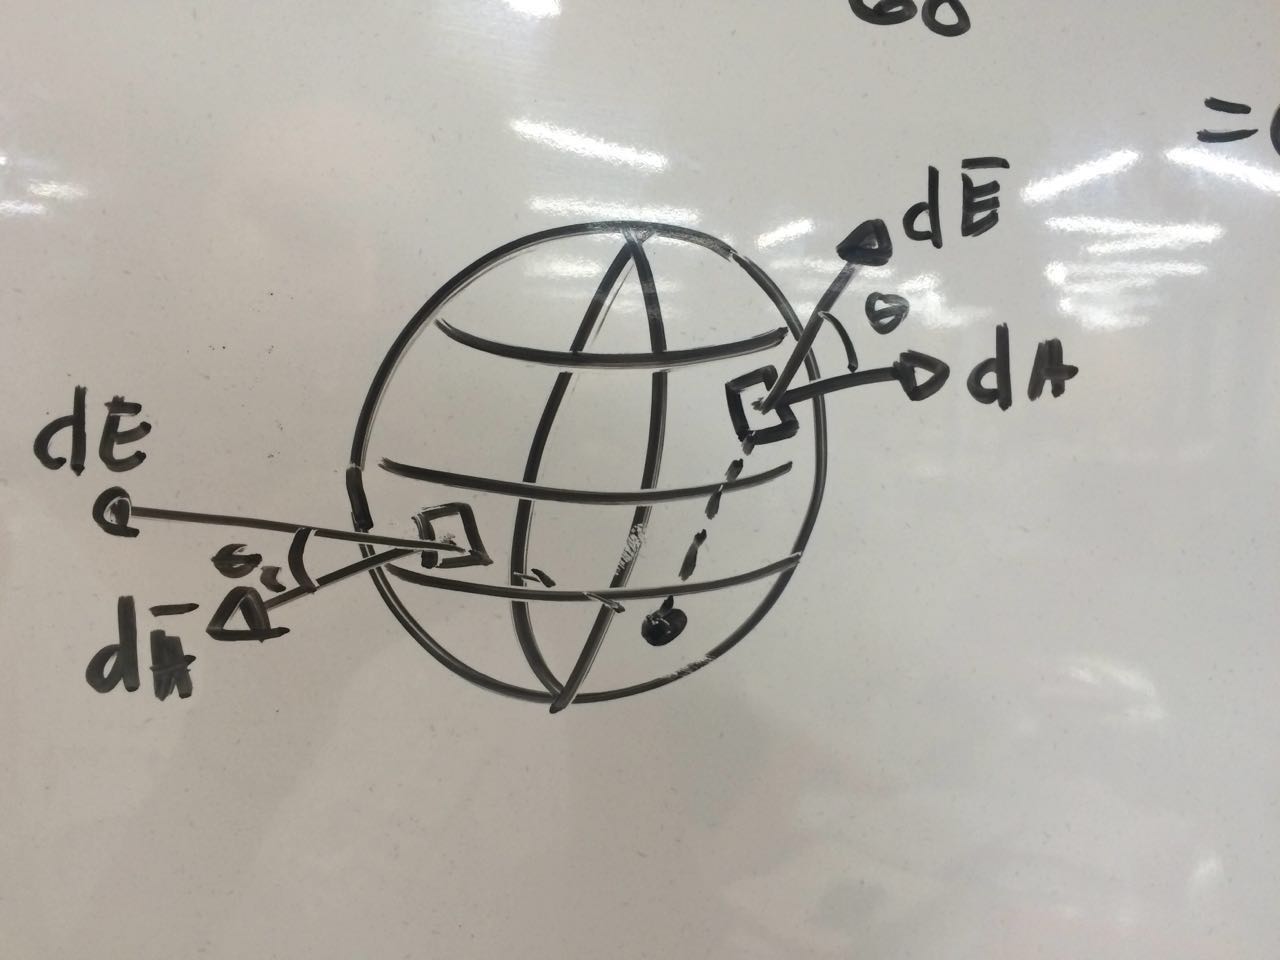 60
=
dE̅
θ
dA
dE
θ
dA̅